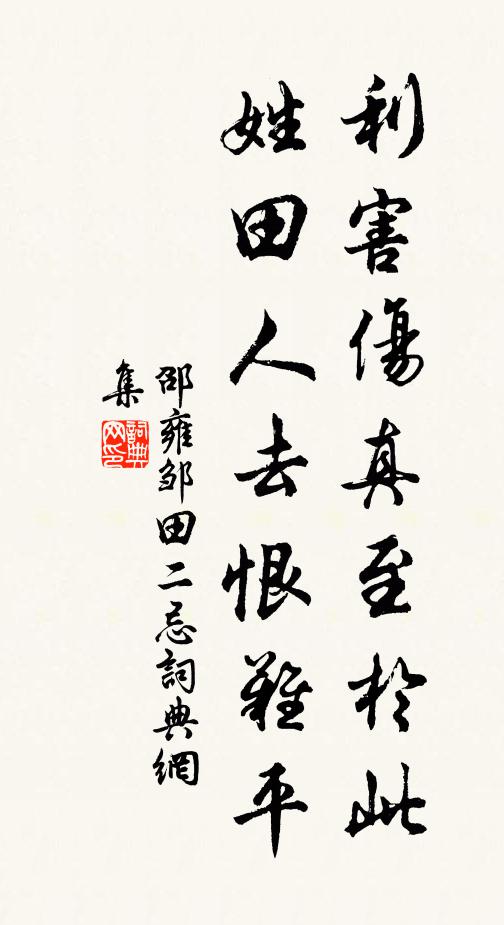 利害傷真至於此
姓田人去恨難平
邵雍鄒田二忌詞典網
集
詞典
网印